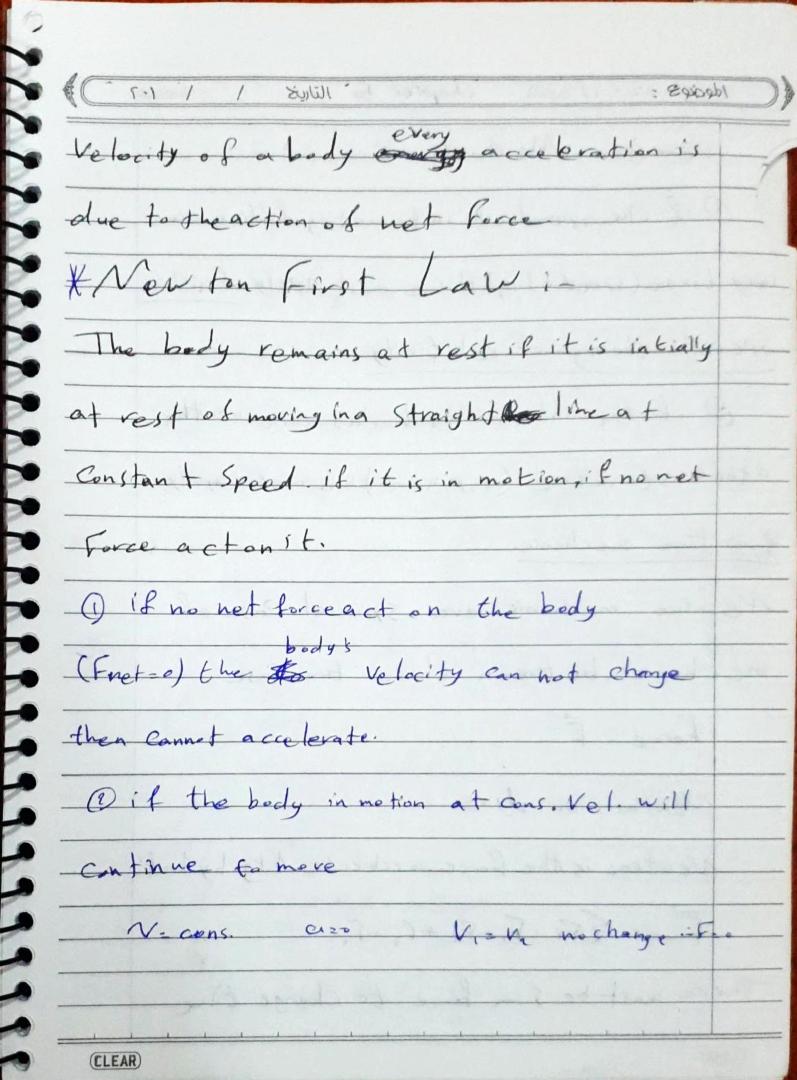 الموضوع : التاريخ / / ٢٠١
Velocity of a body every acceleration is
due to the action of net force
* Newton First Law :-
The body remains at rest if it is intially
at rest of moving in a straight line at
Constant Speed. if it is in motion, if no net
Force act on it.
① if no net force act on the body
(Fnet=0) the body's velocity can not change
then cannot accelerate.
② if the body in motion at cons. Vel. will
continue to move
V= cons. a=0 V₁=V₂ no change ∴F=0
CLEAR